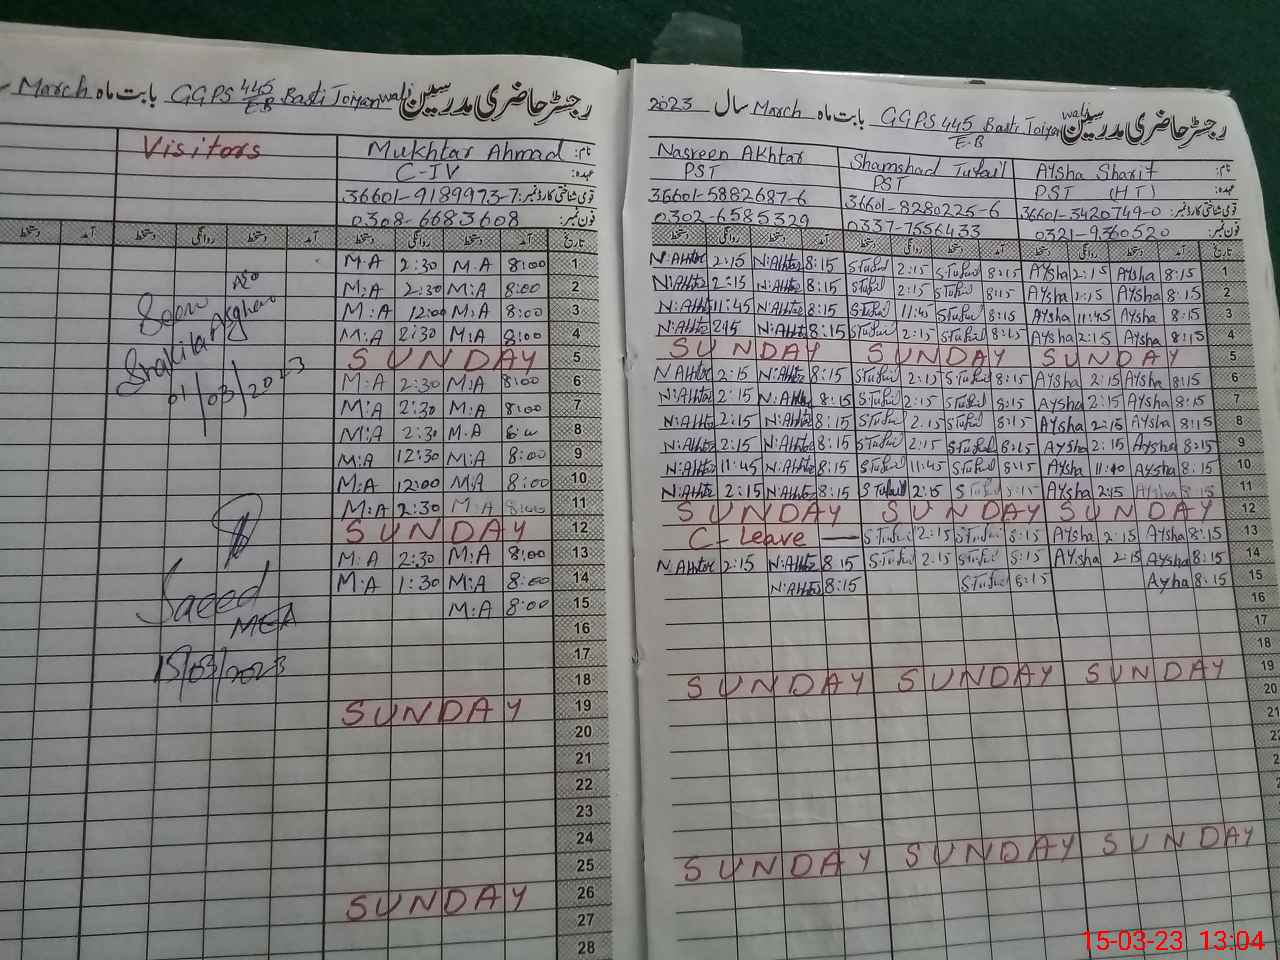 March بابت ماہ GGPS 445/EB Basti Joiyanwali رجسٹر حاضری مدرسین
Visitors
Mukhtar Ahmad نام:
C-IV عہدہ:
36601-9189973-7 قومی شناختی کارڈ نمبر:
0308-6683608 فون نمبر:
دستخط آمد دستخط روانگی دستخط آمد دستخط روانگی دستخط آمد تاریخ
M.A 2:30 M.A 8:00 1
M:A 2:30 M:A 8:00 2
M:A 12:00 M:A 8:00 3
M:A 2:30 M:A 8:00 4
SUNDAY 5
M:A 2:30 M:A 8:00 6
M:A 2:30 M:A 8:00 7
M:A 2:30 M.A 8
M:A 12:30 M:A 8:00 9
M:A 12:00 M:A 8:00 10
M:A 2:30 M:A 8:00 11
SUNDAY 12
M:A 2:30 M:A 8:00 13
M:A 1:30 M:A 8:00 14
M:A 8:00 15
16
17
18
SUNDAY 19
20
21
22
23
24
25
SUNDAY 26
27
28
Shakila Asghar
01/03/2023
Saeed
MEA
15/03/2023
2023 سال March بابت ماہ GGPS 445/E.B Basti Joiyanwali رجسٹر حاضری مدرسین
Nasreen Akhtar Shamshad Tufail Aysha Sharif نام:
PST PST PST (HT) عہدہ:
36601-5882687-6 36601-8280225-6 36601-3420749-0 قومی شناختی کارڈ نمبر:
0302-6585329 0337-7556433 0321-9360520 فون نمبر:
دستخط روانگی دستخط آمد دستخط روانگی دستخط آمد دستخط روانگی دستخط آمد تاریخ
N.Akhtar 2:15 N:Akhtar 8:15 S Tufail 2:15 S Tufail 8:15 Aysha 2:15 Aysha 8:15 1
N:Akhtar 2:15 N:Akhtar 8:15 S Tufail 2:15 S Tufail 8:15 Aysha Aysha 8:15 2
N:Akhtar 11:45 N:Akhtar 8:15 S Tufail 11:45 S Tufail 8:15 Aysha 11:45 Aysha 8:15 3
N:Akhtar 2:15 N:Akhtar 8:15 S Tufail 2:15 S Tufail 8:15 Aysha 2:15 Aysha 8:15 4
SUNDAY SUNDAY SUNDAY 5
N Akhtar 2:15 N:Akhtar 8:15 S Tufail 2:15 S Tufail 8:15 Aysha 2:15 Aysha 8:15 6
N:Akhtar 2:15 N:Akhtar 8:15 S Tufail 2:15 S Tufail 8:15 Aysha 2:15 Aysha 8:15 7
N:Akhtar 2:15 N:Akhtar 8:15 S Tufail 2:15 S Tufail 8:15 Aysha 2:15 Aysha 8:15 8
N:Akhtar 2:15 N:Akhtar 8:15 S Tufail 2:15 S Tufail 8:15 Aysha 2:15 Aysha 8:15 9
N:Akhtar 11:45 N:Akhtar 8:15 S Tufail 11:45 S Tufail 8:15 Aysha Aysha 8:15 10
N:Akhtar 2:15 N:Akhtar 8:15 S Tufail 2:15 S Tufail 8:15 Aysha 2:15 Aysha 8:15 11
SUNDAY SUNDAY SUNDAY 12
C-Leave — S Tufail 2:15 S Tufail 8:15 Aysha 2:15 Aysha 8:15 13
N Akhtar 2:15 N:Akhtar 8:15 S Tufail 2:15 S Tufail 8:15 Aysha 2:15 Aysha 8:15 14
N:Akhtar 8:15 S Tufail 8:15 Aysha 8:15 15
16
17
18
SUNDAY SUNDAY SUNDAY 19
20
SUNDAY SUNDAY SUNDAY
15-03-23 13:04